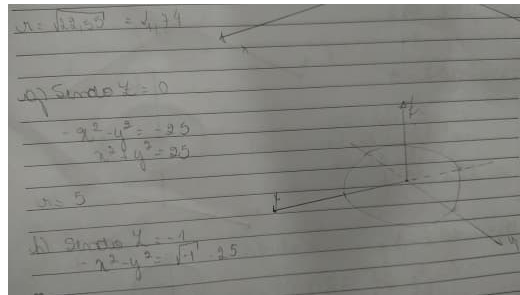 r = √22,55 = 4,74
g) Sendo Z = 0
- x² - y² = - 25
x² + y² = 25
r = 5
h) Sendo Z = - 1
- x² - y² = √-1 - 25
z
y